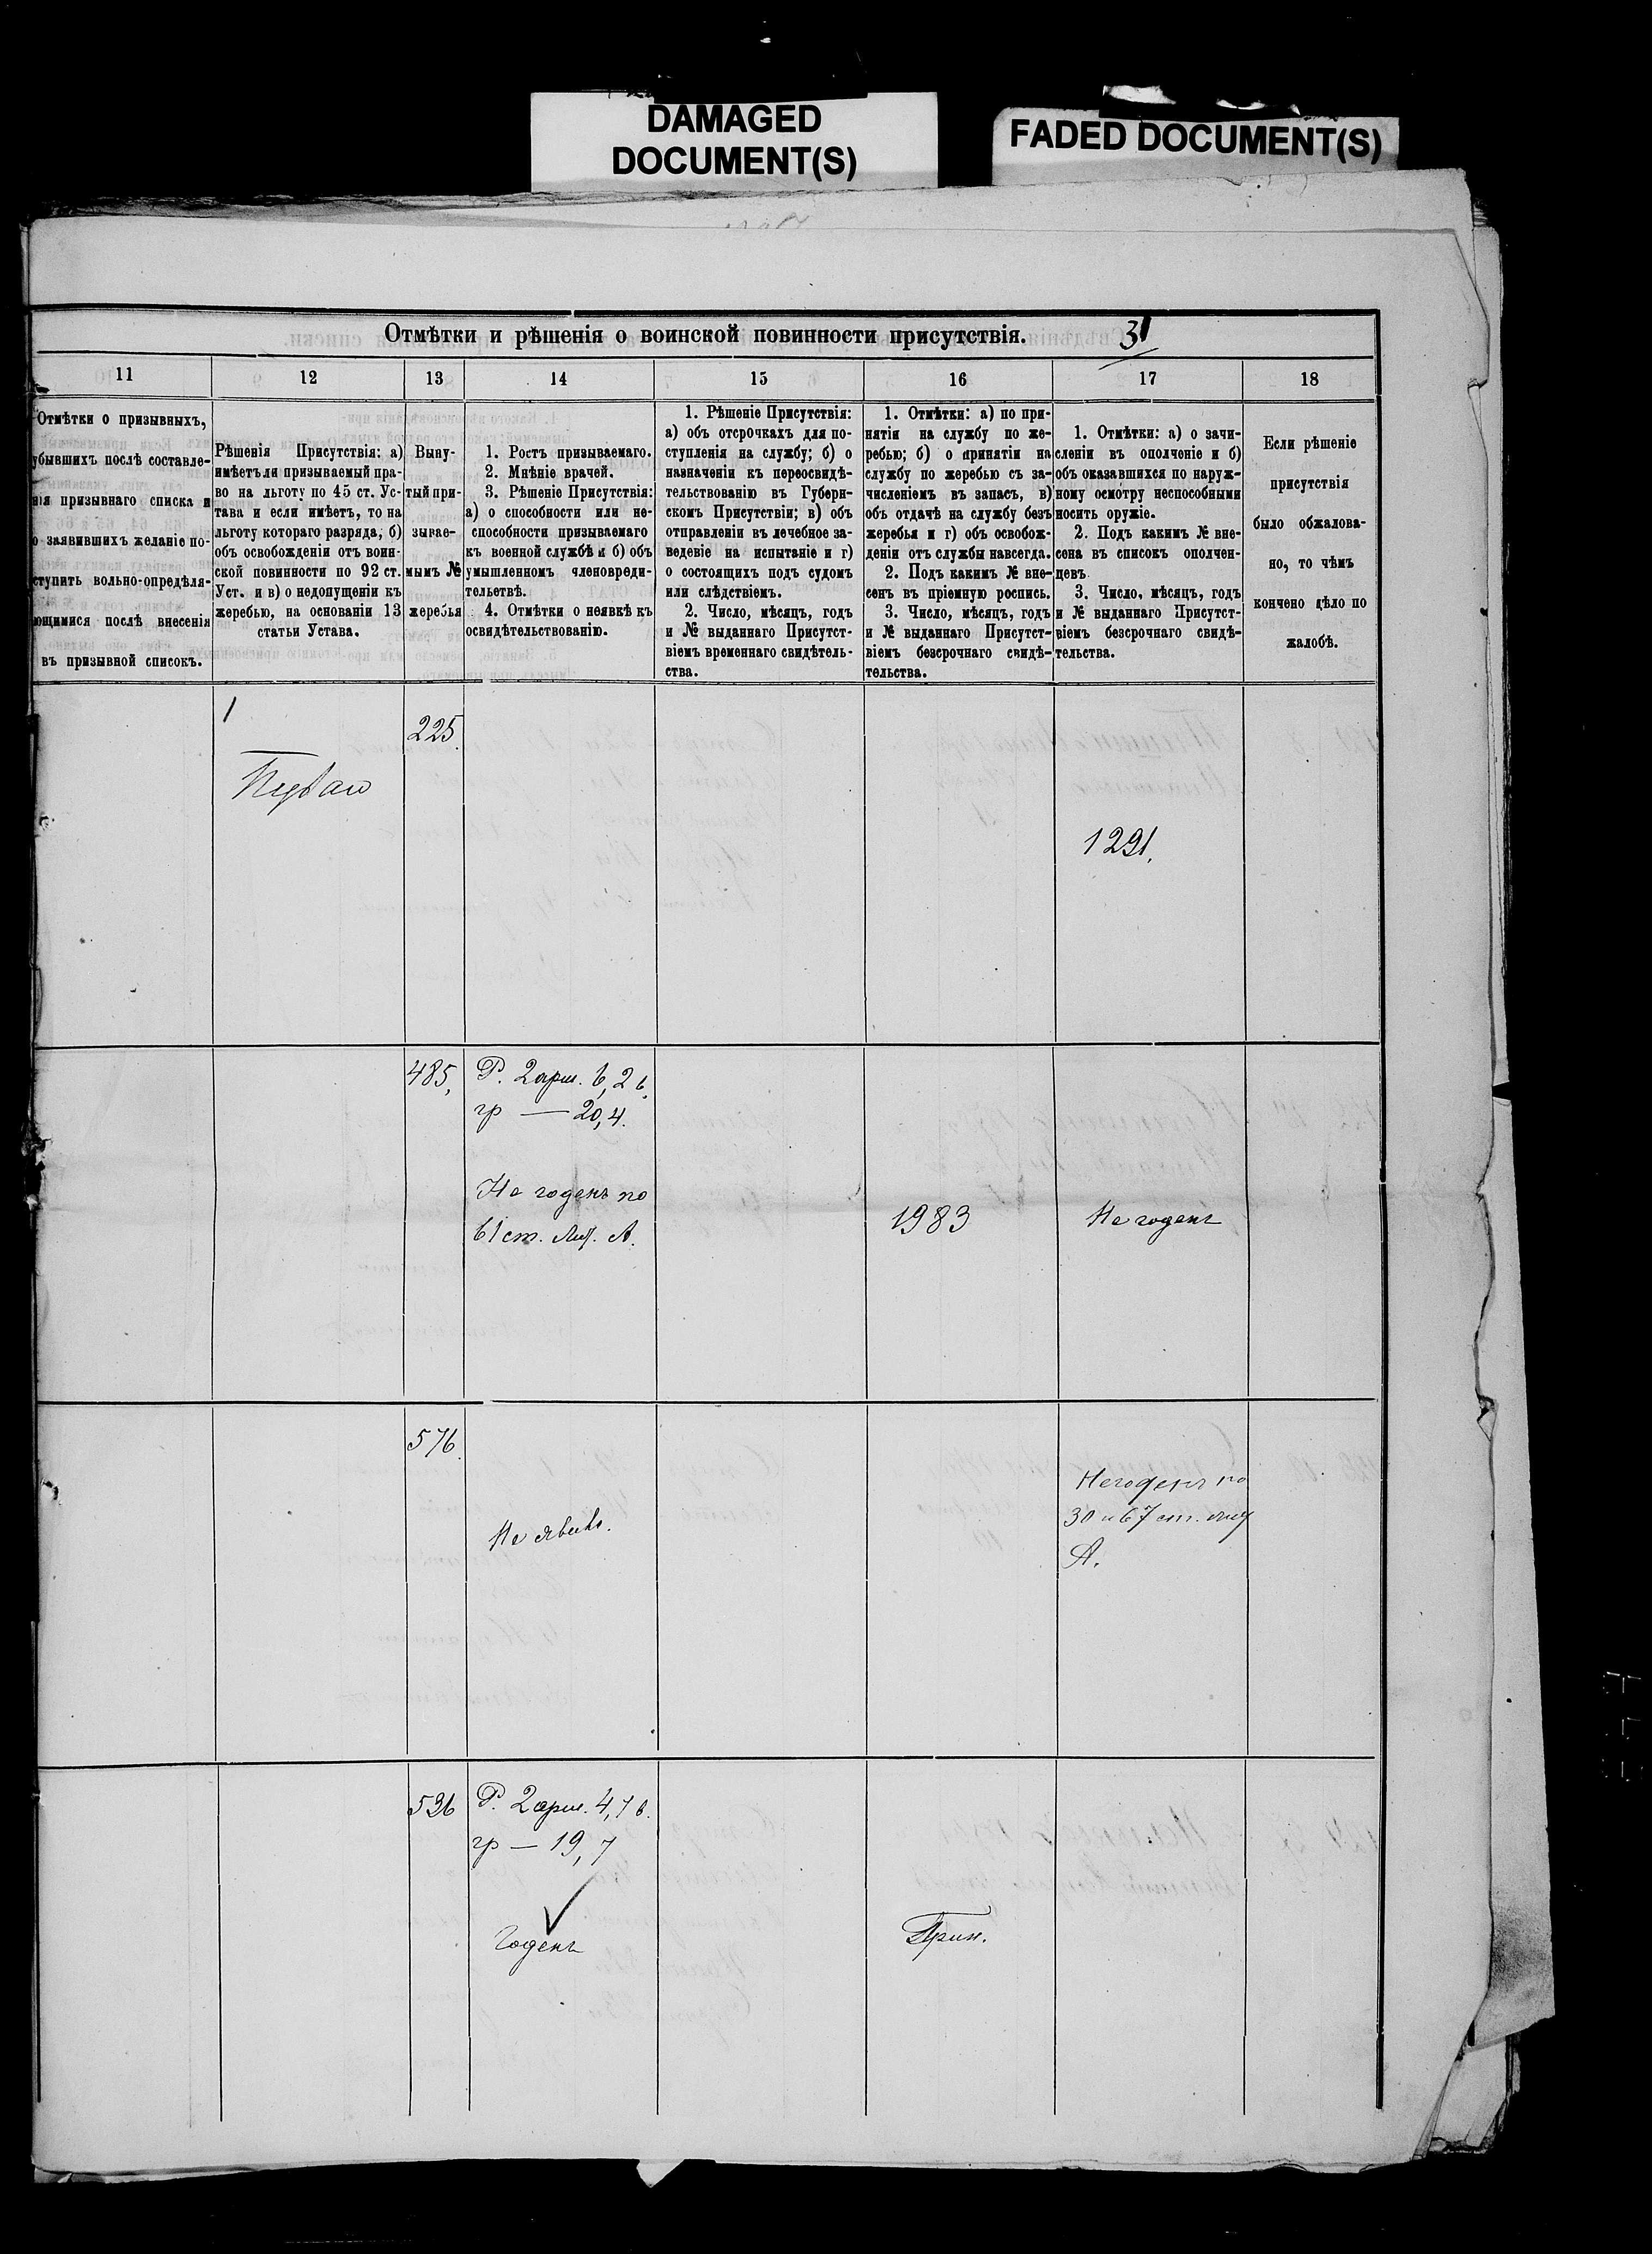 DAMAGED
DOCUMENT(S)
FADED DOCUMENT(S)
Отмѣтки и рѣшенія о воинской повинности присутствія.
31
11
12
13
14
15
16
17
18
Отмѣтки о призывныхъ,
убывшихъ послѣ составле-
нія призывнаго списка и
о заявившихъ желаніе по-
ступить вольно-опредѣля-
ющимися послѣ внесенія
въ призывной списокъ.
Рѣшенія Присутствія: а)
имѣетъ ли призываемый пра-
во на льготу по 45 ст. Ус-
тава и если имѣетъ, то на
льготу котораго разряда, б)
объ освобожденіи отъ воин-
ской повинности по 92 ст.
Уст. и в) о недопущеніи къ
жеребью, на основаніи 13
статьи Устава.
Выну-
тый при-
зывае-
мымъ №
жеребья
1. Ростъ призываемаго.
2. Мнѣніе врачей.
3. Рѣшеніе Присутствія:
а) о способности или не-
способности призываемаго
къ военной службѣ и б) объ
умышленномъ членовреди-
тельствѣ.
4. Отмѣтки о неявкѣ къ
освидѣтельствованію.
1. Рѣшеніе Присутствія:
а) объ отсрочкахъ для по-
ступленія на службу; б) о
назначеніи къ переосвидѣ-
тельствованію въ Губерн-
скомъ Присутствіи; в) объ
отправленіи въ лечебное за-
веденіе на испытаніе и г)
о состоящихъ подъ судомъ
или слѣдствіемъ.
2. Число, мѣсяцъ, годъ
и № выданнаго Присутст-
віемъ временнаго свидѣтель-
ства.
1. Отмѣтки: а) по при-
нятіи на службу по же-
ребью; б) о принятіи на
службу по жеребью съ за-
численіемъ въ запасъ, в)
объ отдачѣ на службу безъ
жеребья и г) объ освобож-
деніи отъ службы навсегда.
2. Подъ какимъ № вне-
сенъ въ пріемную роспись.
3. Число, мѣсяцъ, годъ
и № выданнаго Присутст-
віемъ безсрочнаго свидѣ-
тельства.
1. Отмѣтки: а) о зачи-
сленіи въ ополченіе и б)
объ оказавшихся по наруж-
ному осмотру неспособными
носить оружіе.
2. Подъ какимъ № вне-
сена въ списокъ ополчен-
цевъ.
3. Число, мѣсяцъ, годъ
и № выданнаго Присутст-
віемъ безсрочнаго свидѣ-
тельства.
Если рѣшеніе
присутствія
было обжалова-
но, то чѣмъ
кончено дѣло по
жалобѣ.
1
225.
1291.
485, Р. 2 арш. 6,2 в.
гр — 20,4.
Не годенъ по
61 ст. Лит. А.
1983
Не годенъ
576.
Не явивс.
Негоденъ по
30 и 67 ст. лит
А.
536 Р. 2 арш. 4,7 в.
гр — 19,7
Годенъ
Прин.